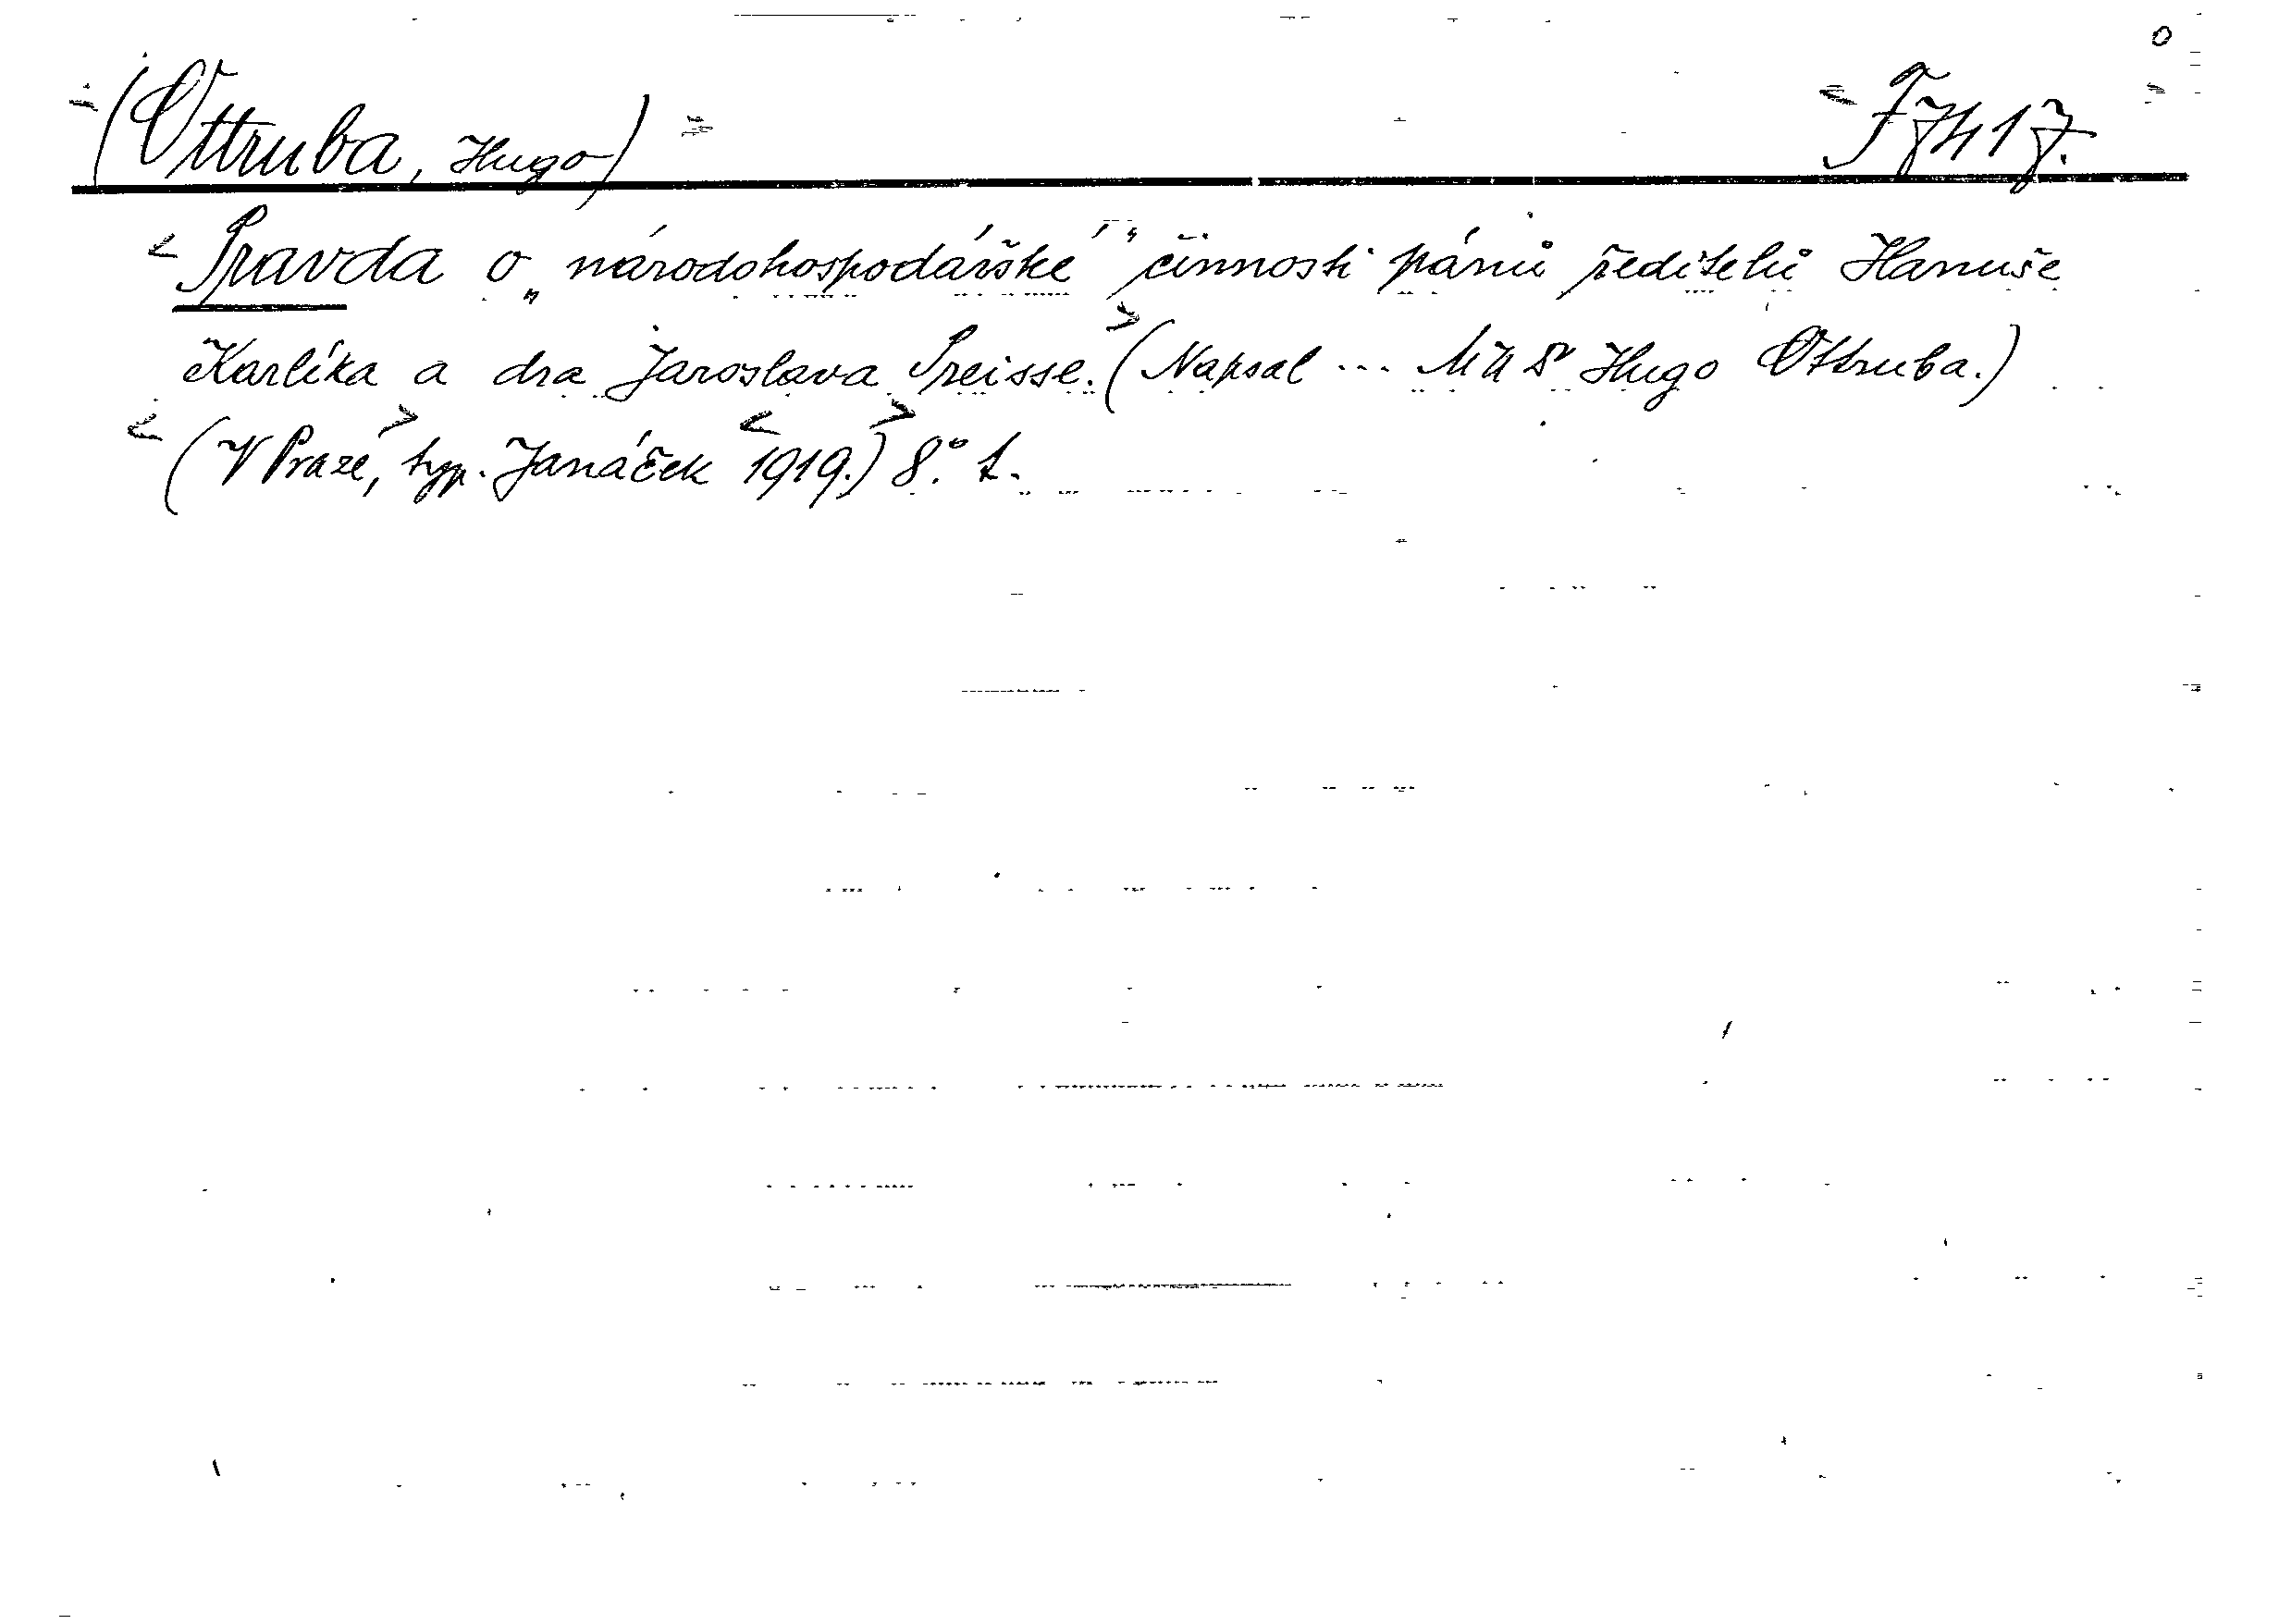 (Ottruba, Hugo) F 7417.
Pravda o „národohospodářské" činnosti pánů ředitelů Hanuše
Karlíka a dra Jaroslava Preisse. (Napsal ... Hugo Ottruba.)
(V Praze, typ. Janáček 1919.) 8.° 1.